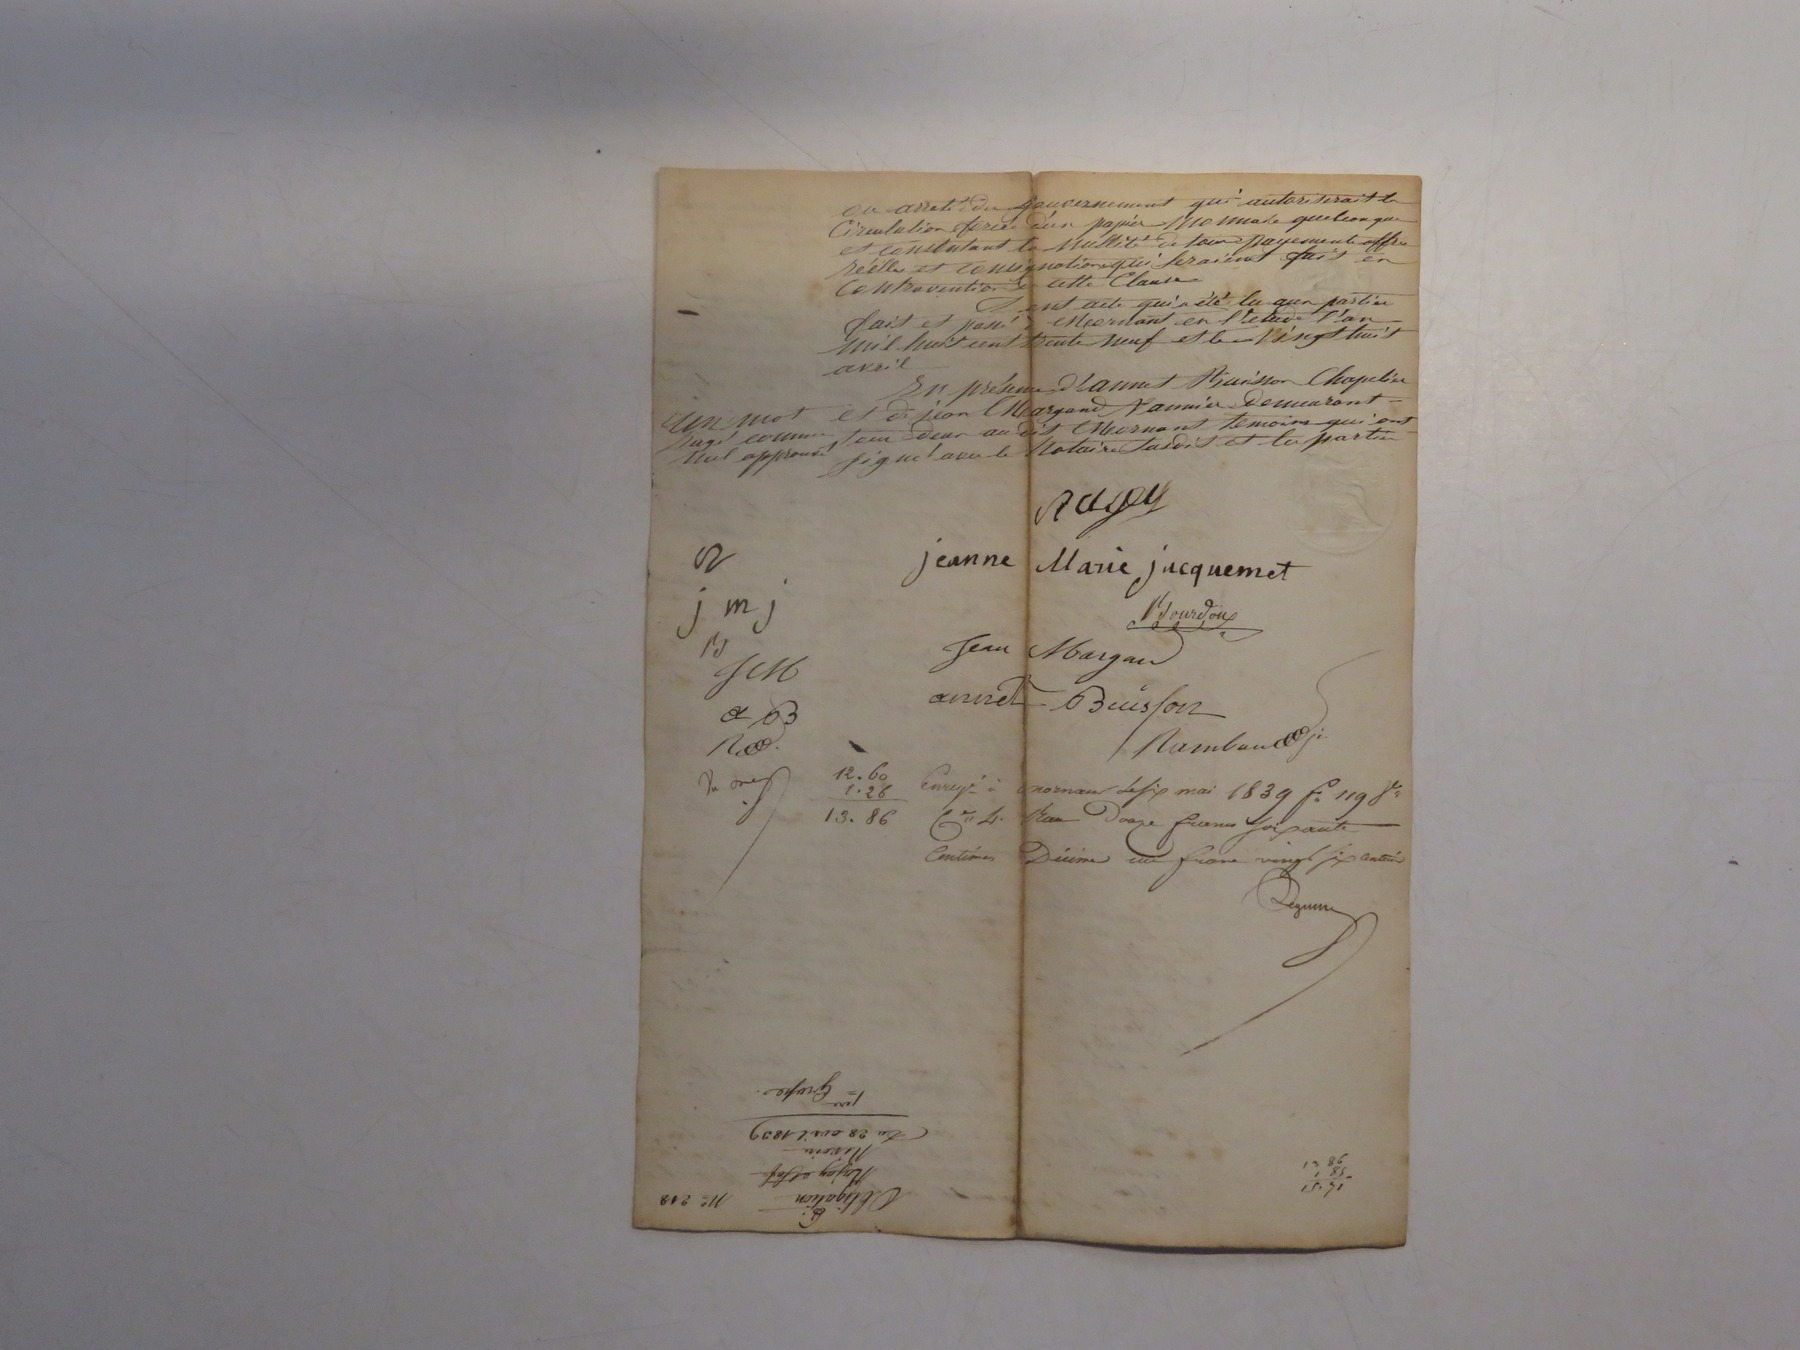 ou arreté du gouvernement qui autoriserait la
Circulation forcée d'un papier Monnaie quelconque
et constatant la Nullité de tous payements offre
réelles et consignations qui seraient fait en
Contravention de cette Clause
Dont acte qui a été lu aux parties
fait et passé à Mornant en l'etude l'an
Mil huit cent trente neuf et le Vingt huit
avril
En présence d'annet Buisson Chapelier
et de jean Margand Vannier Demeurant
tous deux au dit Mornant temoins qui ont
signé avec le Notaire susdit et les parties
un mot
rayé comme
nul approuvé
Ragey
R
jeanne Marie jacquemet
j m j
Bourdoux
B
Jean Margan
J M
annet Buisson
a B
Rambaud
12.60
1.26
13.86
Enregé à mornant le six mai 1839 fo 119 Vo
Cse 4. Reçu Douze francs soixante
Centimes Décime un franc vingt six centimes
13.86
1.85
15.71
No 218
Obligation
Du 28 avril 1839
1ere Grosse.